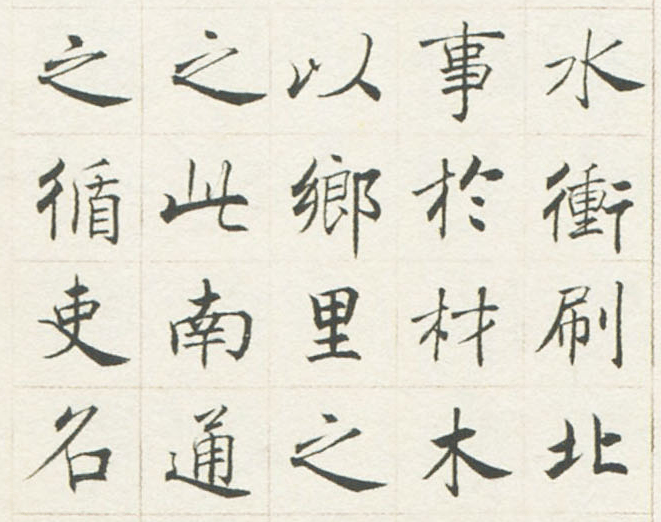 水衝刷北
事於材木
以鄉里之
之此南通
之循吏名